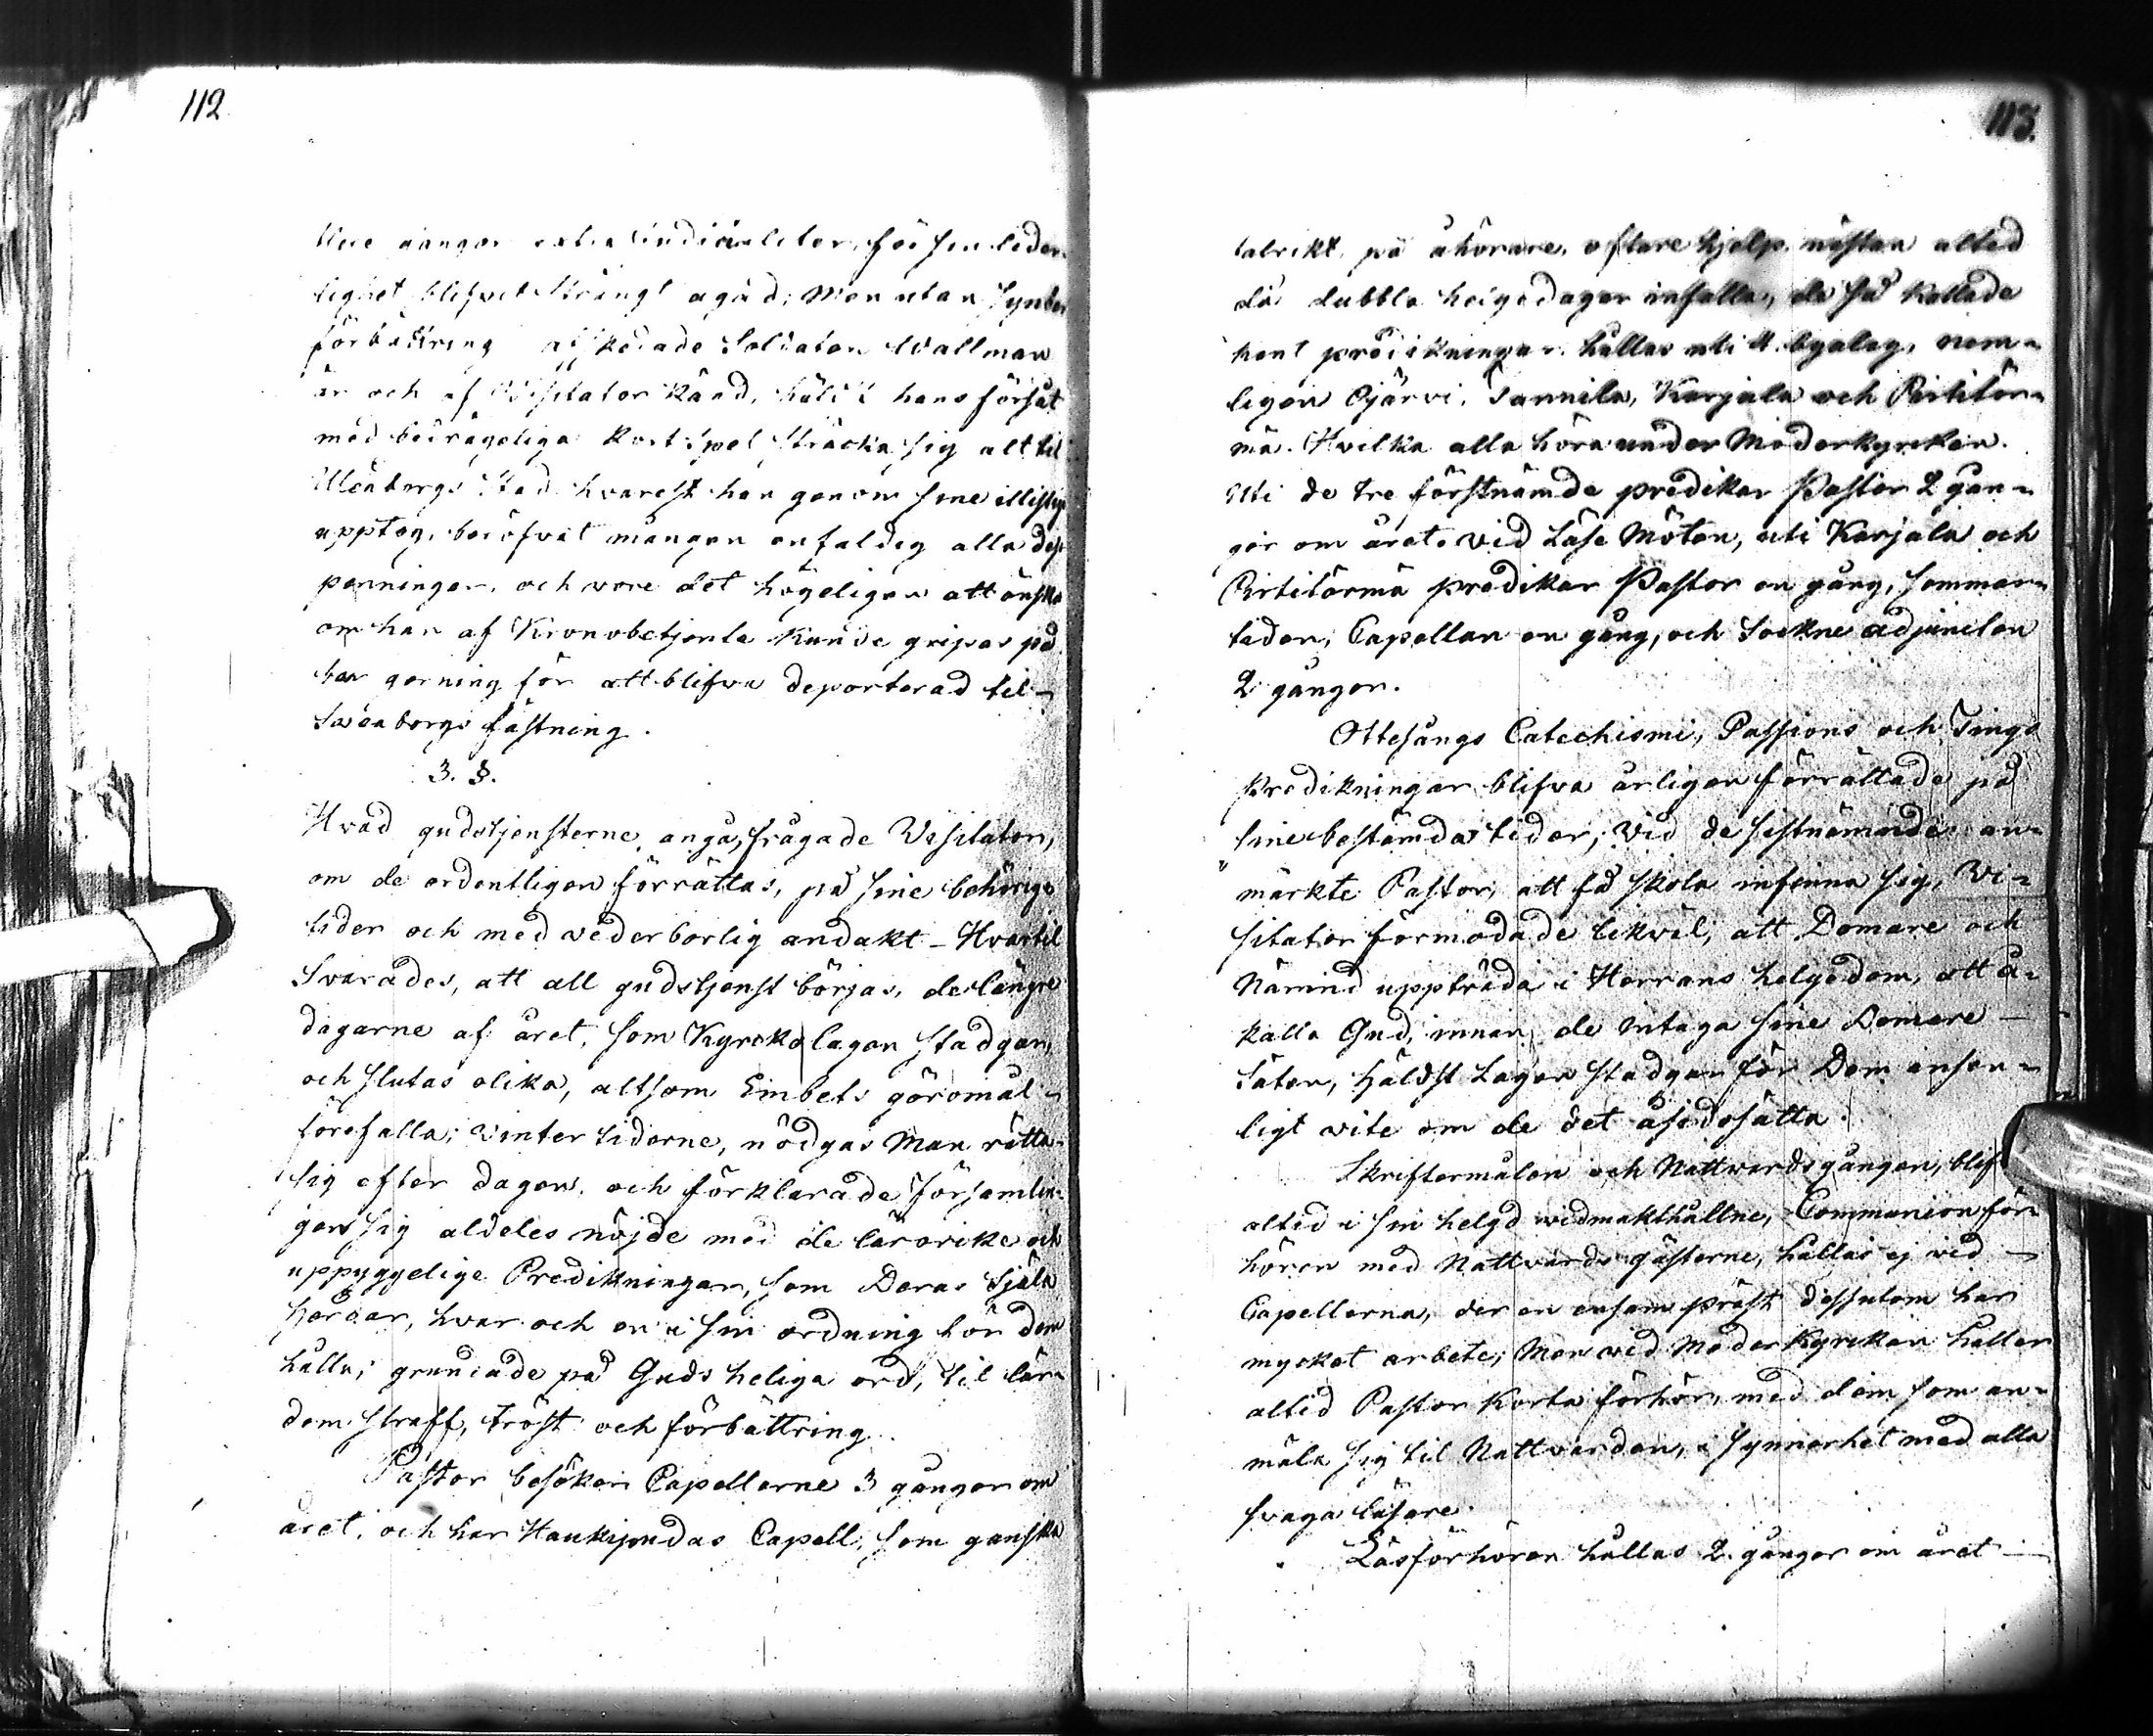 112
flere gångor extra judicialiter, för sin lider-
lighet blifvet strängt agad; Men utan synbar
förbättring afskedade Soldaten Wallman
är och af Visitator känd,
med bedrägeliga kortspel sträcka sig alt til
Uleåborgs Stad hvarest han genom sine illistige
upptog, beröfvat mången enfaldig alla dess
penningar, och vore det högeligen att önska
om han af Kronobetjente kunde gripas på
bar gerning för att blifva deporterad til
Sveaborgs fästning.
3. §.
Hvad gudstjensterne angå, frågade Visitator,
om de ordentligen förrättas, på sine behörige
tider och med vederborlig andakt – Hvartil
Svarades, att all gudstjenst börjas, de längre
dagarne af året, som Kyrko lagen stadgar,
och slutas olika, altsom Embets göromål
förefalla; vinter tiderne, nödgas Man rätta
sig efter dagen, och förklarade församlin-
gen sig aldeles nöjde med de lärorike och
uppyggelige Predikningar, som Deras Själa
Herdar, hvar och en i sin ordning för dem
hålla; grundade på Guds heliga ord, til lär-
dom straff, tröst och förbättring.
Pastor besöker Capellerne 3 gångor om
året, och har Haukipudas Capell, som ganska
113.
talrikt på åhörare, oftare hjelp, nästan altid
då dubbla helgedagar infalla, de så kallade
predikningar hållas uti 4 byalag, nem-
ligen Ojärvi, Tannila, Karjala och Pirtitör-
mä. Hvilka alla höra under Moderkyrkan.
Uti de tre förstnämde predikar Pastor 2 gån-
gor om året vid Läse Möten, uti Karjala och
Pirtitörmä predikar Pastor en gång, sommar-
tiden, Capellan en gång, och Sockne adjuncten
2 gångor.
Ottesångs Catechismi, Passions och Tings
Predikningar blifva årligen förrättade på
sine bestämda tider; Vid de sistnämnde an-
märkte Pastor, att få skola infinna sig, Vi-
sitator förmodade likväl, att Domare och
Nämnd uppträda i Herrans helgedom, att å-
kalla Gud, innan de intaga sine Domare –
Säten, häldst Lagen stadgar för Dem ansen-
ligt vite om de det åsidosätta.
Skriftermålen och Nattwardsgången, blif
altid i sin helgd widmakthållne, Communion för-
hören med Nattvards gästerne, hållas ej vid –
Capellerna, der en ensam präst dessutom har
mycket arbete; Men vid Moderkyrkan håller
altid Pastor korta förhör, med dem som an-
mäla sig til Nattvarden, i synnerhet med alla
svaga läsare.
Läsförhören hållas 2. gångor om året –